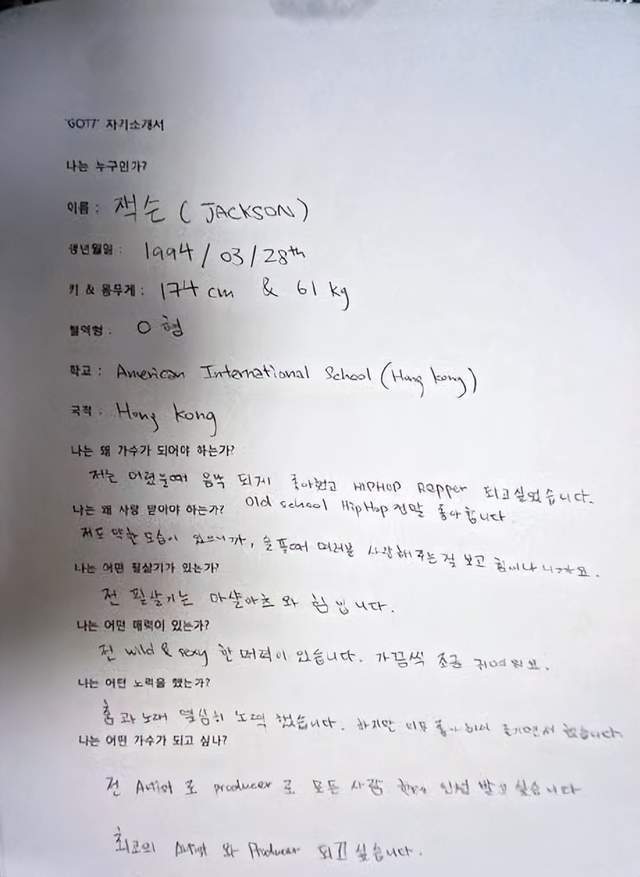 'GOT7' 자기소개서
나는 누구인가?
이름 : 잭슨 ( JACKSON )
생년월일 : 1994 / 03 / 28th
키 & 몸무게 : 174 cm & 61 kg
혈액형 : O 형
학교 : American International School (Hong kong)
국적 : Hong kong
나는 왜 가수가 되어야 하는가?
저는 어렸을때 음쓱 되게 좋아했고 HIPHOP Rapper 되고싶었습니다.
Old school HipHop 정말 좋아합니다
나는 왜 사랑 받아야 하는가?
저도 약한 모습이 있으니까, 슬플때 여러분 사랑해주는걸 보고 힘이나니까요.
나는 어떤 필살기가 있는가?
전 필살기는 마샬아츠 와 힘 입니다.
나는 어떤 매력이 있는가?
전 wild & sexy 한 매력이 있습니다. 가끔씩 조금 귀여워요.
나는 어떤 노력을 했는가?
춤과 노래 열심히 노력 했습니다. 하지만 너무 좋아해서 즐기면서 했습니다.
나는 어떤 가수가 되고 싶나?
전 Artist 로 producer 로 모든 사람 한테 인정 받고 싶습니다
최고의 Artist 와 Producer 되고 싶습니다.